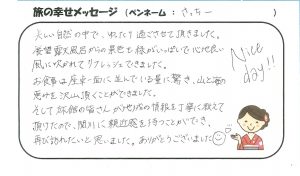 旅の幸せメッセージ (ペンネーム: さっちー )
美しい自然の中で、ゆったり過ごさせて頂きました。
展望露天風呂からの景色も様がいっぱいで心地良い
風に吹かれてリフレッシュできました。
お食事は座卓一面に並んでいる量に驚き、山と海の
恵みを沢山頂くことができました。
そして旅館の皆さんが地域の情報を丁寧に教えて
頂けたので、関川に親近感を持つことができ、
再び訪れたいと思いました。ありがとうございました
Nice
day!!